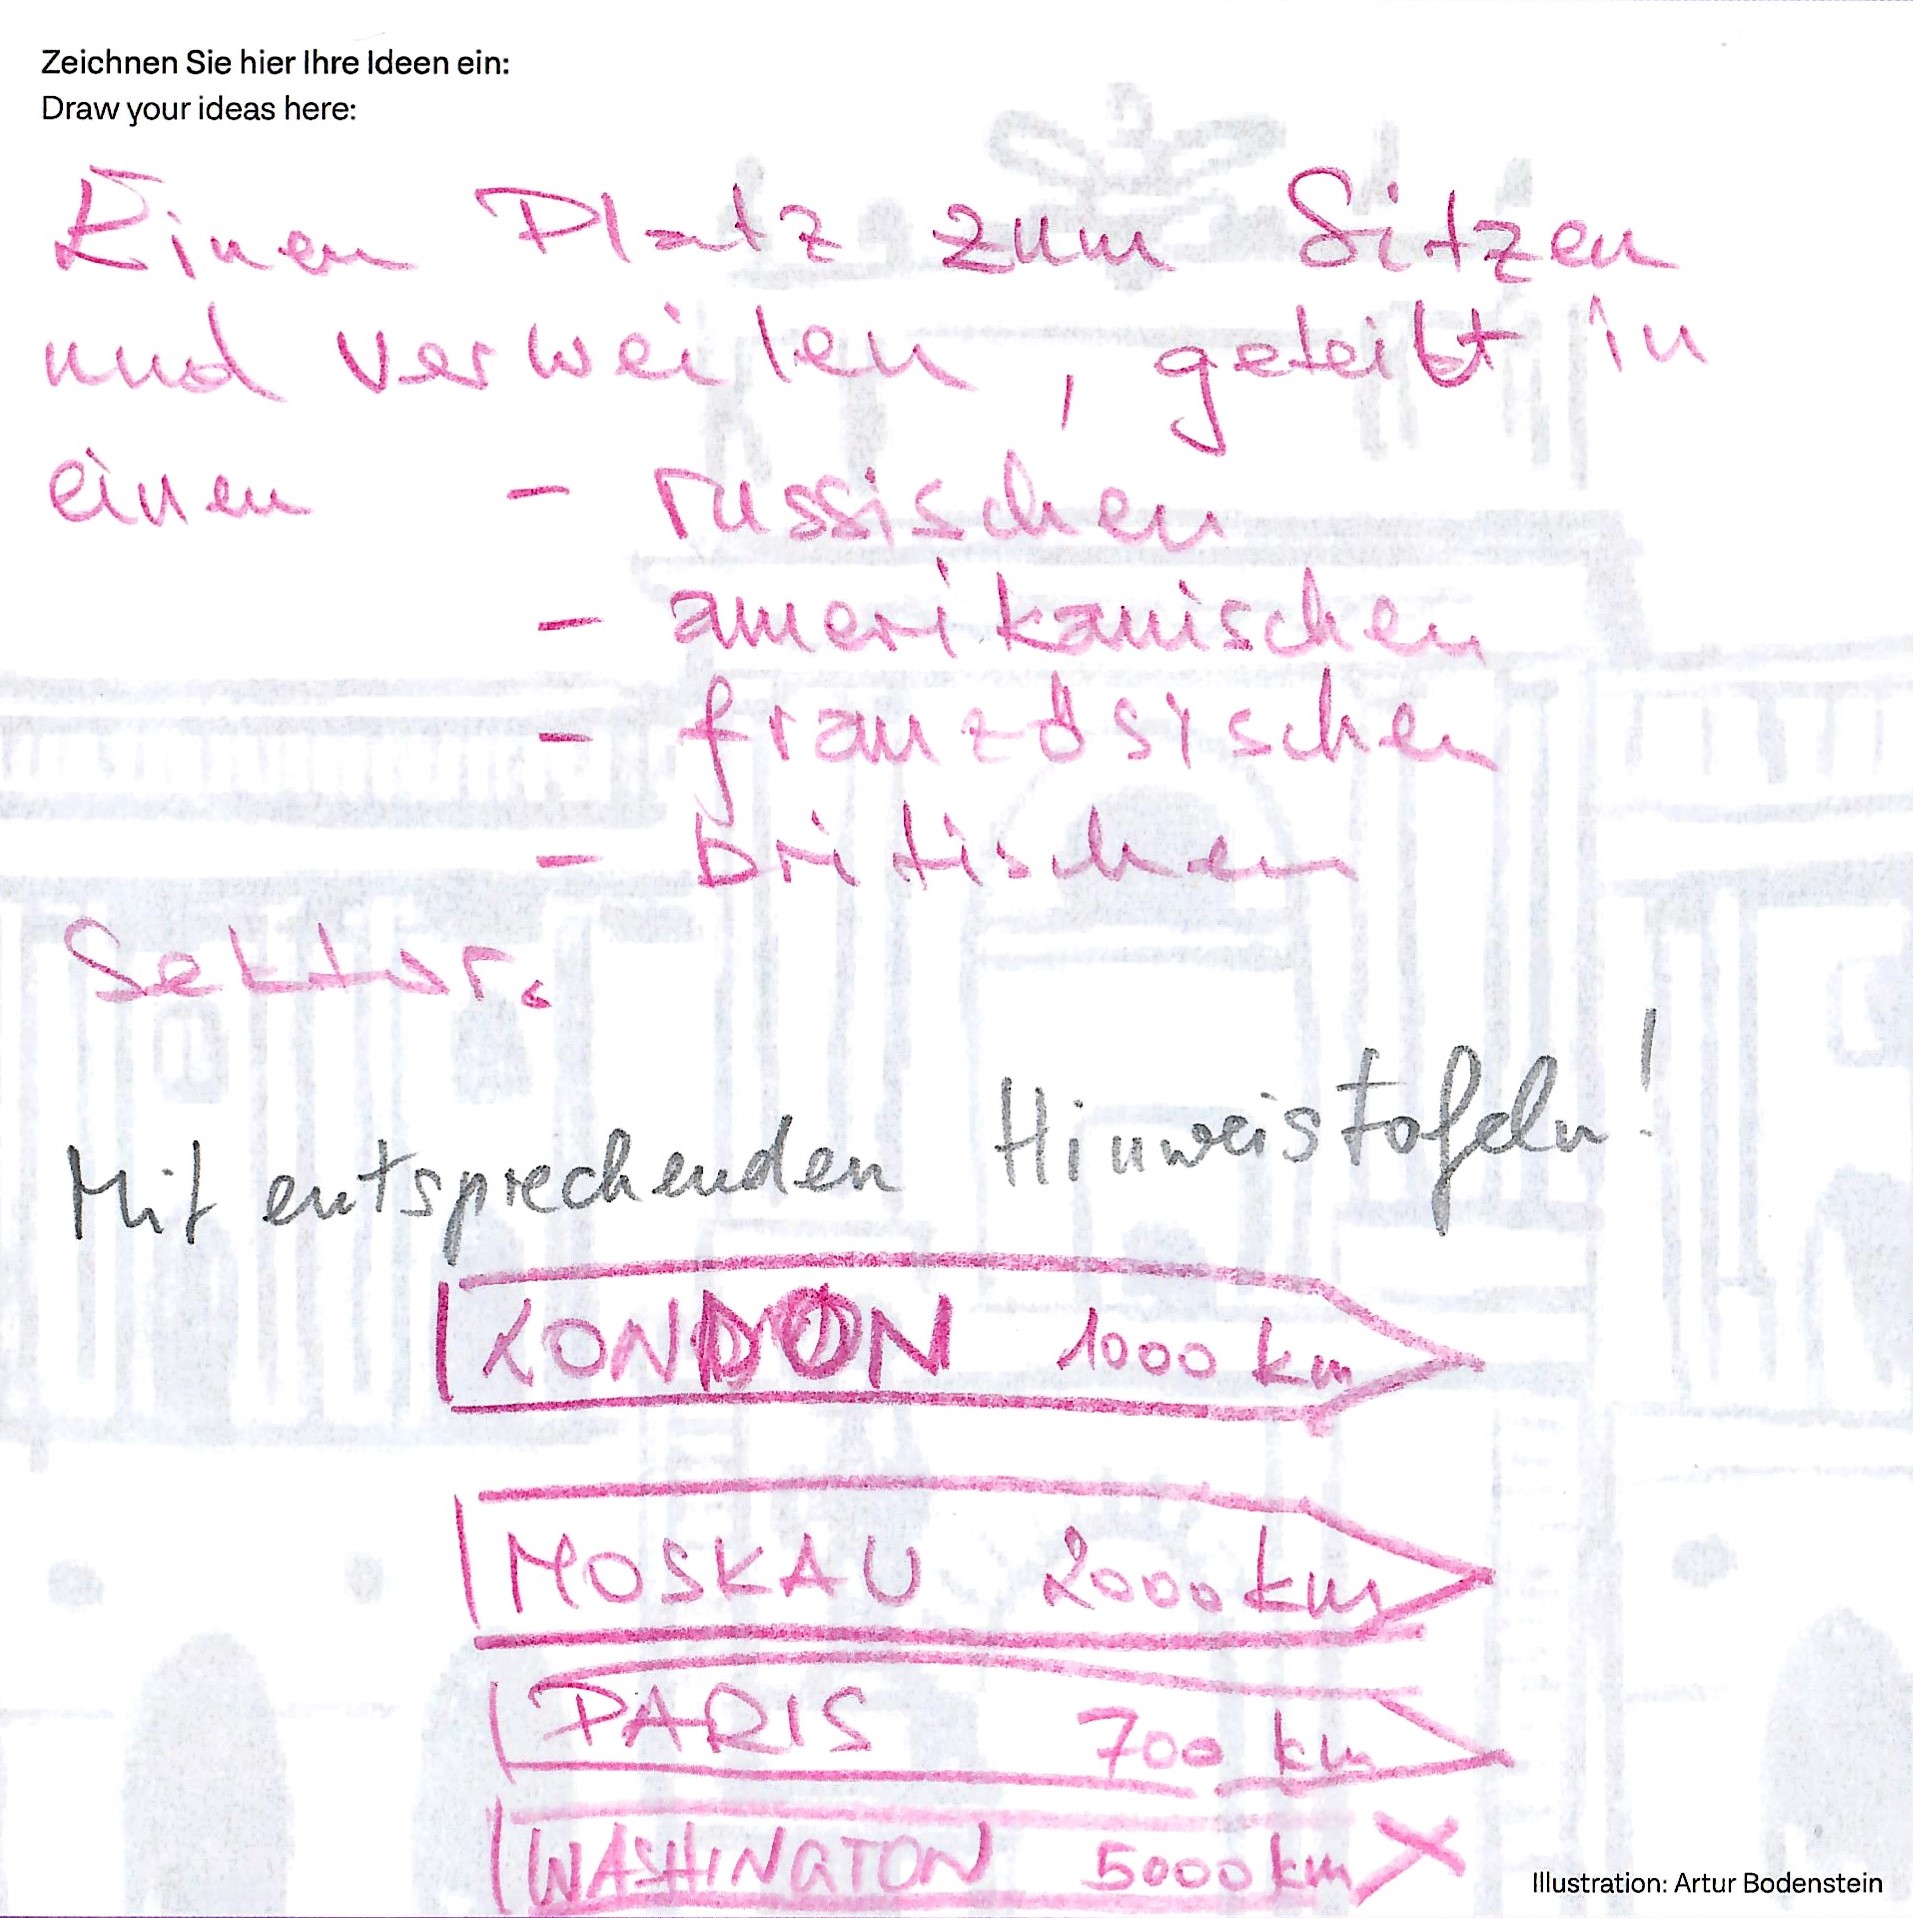 Zeichnen Sie hier Ihre Ideen ein:
Draw your ideas here:
Einen Platz zum Sitzen
und verweilen, geteilt in
einen - russischen
- amerikanischen
- französischen
- britischen
Sektor.
Mit entsprechenden Hinweistafeln!
LONDON 1000 km
MOSKAU 2000 km
PARIS 700 km
WASHINGTON 5000 km
Illustration: Artur Bodenstein